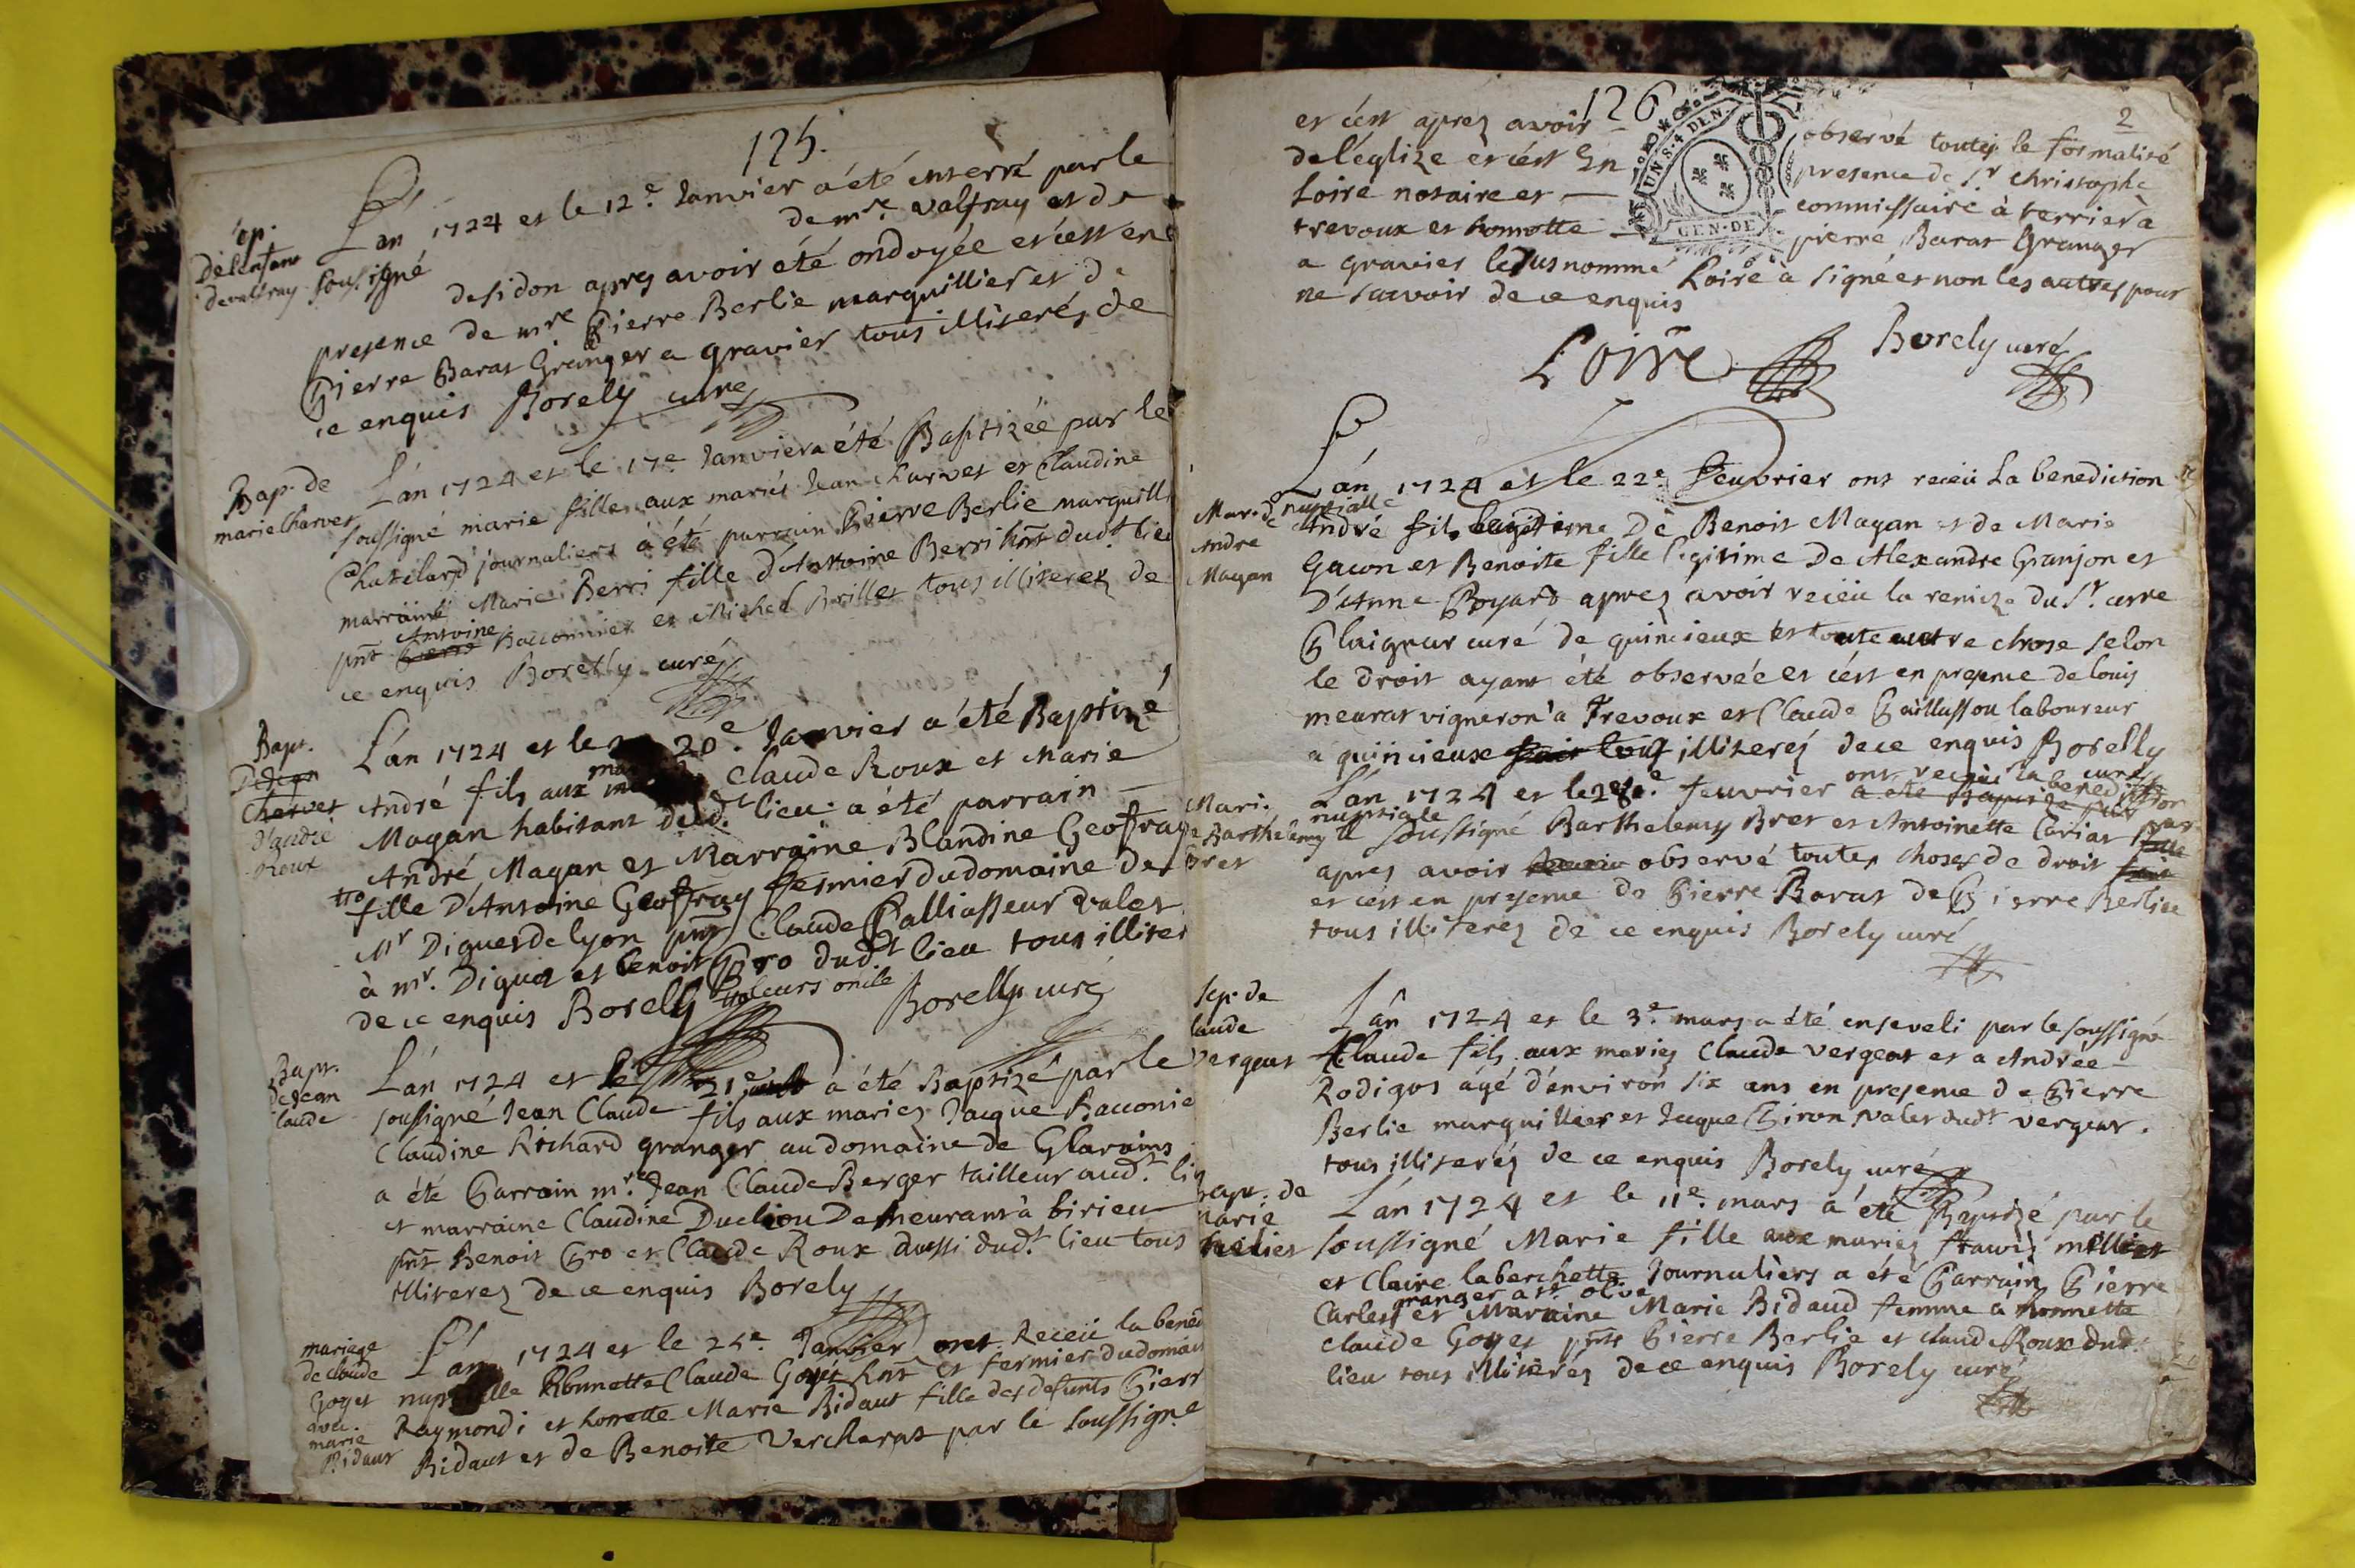 125.
ép.
De lenfant
de valfray
L'an 1724 et le 12e. Janvier a été enterré par le
soussigné de mre. valfray et de
desidon apres avoir été ondoyée et c'est en
presence de mre Pierre Berlie marguillier et de
Pierre Barat Granger a gravier tous illiterés de
ce enquis Borely curé
Bap. de
marie Charvet
L'an 1724 et le 17e Janvier a été Baptizée par le
soussigné marie fille aux mariés Jean Charvet et Claudine
Chatelard journaliers a été parrain Pierre Berlie marguill
marraine Marie Berri fille d'Antoine Berri hnt dudt lieu
Antoine
pnt Pierre Baconnier et Michel Brillet tous illiterez de
ce enquis Borelly curé
Bapt.
De Jean
Chervet
D'andré
Roux
L'an 1724 et le 20e. Janvier a été Baptizé
André fils aux Claude Roux et Marie
Magan habitant dud.t lieu a été parrain
André Magan et Marraine Blandine Geoffray
fille D'Antoine Geoffray fermier du domaine de
Mr Digues de lyon pnt Claude Palliasseur valet
à mr. Digues et benoit Gro dudt lieu tous illiter
de ce enquis Borelly
Borelly curé
Bapt.
de Jean
claude
L'an 1724 et le 21e a été Baptizé par le
soussigné Jean Claude fils aux mariez Jacque Baconie
Claudine Richard granger au domaine de Glarains
a été Parrain mr. Jean Claude Berger tailleur aud.t lie
et marraine Claudine Ducliou Demeurant à birieu
pnt Benoit Gro et Claude Roux aussi dud.t lieu tous
illiterez de ce enquis Borely
mariage
de claude
Goyet
avec
marie
Bidaut
L'an 1724 et le 25e. Janvier ont Receü la bened
nuptialle honnette Claude Goyet hnt et fermier du domain
Raymondi et honette Marie Bidaut fille des defunts Pierr
Bidaut et de Benoite Vercherat par le soussigné
126
2
UN.S.4 DEN.
GEN.DE
et c'est aprez avoir observé toutes le formalité
de l'eglize et c'est En presence de Sr christophe
Loire notaire et commissaire à terrier a
trevoux et honnotte pierre Barat Granger
a gravier le susnommé Loire à signé et non les autres pour
ne scavoir de ce enquis
Loire Borely curé
Mar. de
Andre
Magan
L'an 1724 et le 22e. feuvrier ont receü La benediction
nuptialle
André fils legitime De Benoit Magan et de Marie
Gacon et Benoite fille legitime De Alexandre Granjon et
D'Anne Boyard aprez avoir receü la remise du Sr. curre
Plaigneur curé de quincieux et toute autre chose selon
le droit ayant été observée et c'est en presence de louis
meurat vigneron a Trevoux et Claude Paillasson laboureur
a quincieux illiterez de ce enquis Borelly
curé
Mari.
Barthelemy
Bret
L'an 1724 et le 28e. feuvrier ont receü la benediction
a été Baptizé par
nuptiale
le soussigné Barthelemy Bret et Antoinette Cariat fille
apres avoir observé toutes choses de droit
et c'est en presence de Pierre Barat de Pierre Berlie
tous illiterez de ce enquis Borely curé
Sep. de
laude
vergeat
L'an 1724 et le 3e mars a été enseveli par le soussigné
Claude fils aux mariez Claude vergeat et a Andrée
Rodigos âgé d'environ six ans en presence de Pierre
Berlie marguillier et Jacque Giron valet dudt vergeat.
tous illiterez de ce enquis Borely curé
Bapt. de
marie
L'an 1724 et le 11e. mars a été Baptizé par le
soussigné Marie fille aux mariez francois
et Claire laberchette Journaliers a été Parrain Pierre
granger a st olive
Carlest et Maraine Marie Bidaud femme à honnette
claude Goyet pnt Pierre Berlie et claude Roux dud.t
lieu tous illiterez de ce enquis Borely curé